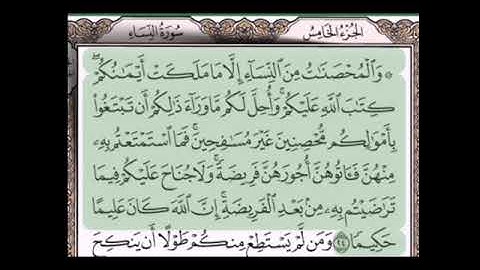 سُورَةُ النِّسَاءِ الجُزْءُ الخَامِسُ
۞ وَالْمُحْصَنَاتُ مِنَ النِّسَاءِ إِلَّا مَا مَلَكَتْ أَيْمَانُكُمْ ۖ
كِتَابَ اللَّهِ عَلَيْكُمْ ۚ وَأُحِلَّ لَكُم مَّا وَرَاءَ ذَٰلِكُمْ أَن تَبْتَغُوا
بِأَمْوَالِكُم مُّحْصِنِينَ غَيْرَ مُسَافِحِينَ ۚ فَمَا اسْتَمْتَعْتُم بِهِ
مِنْهُنَّ فَآتُوهُنَّ أُجُورَهُنَّ فَرِيضَةً ۚ وَلَا جُنَاحَ عَلَيْكُمْ فِيمَا
تَرَاضَيْتُم بِهِ مِن بَعْدِ الْفَرِيضَةِ ۚ إِنَّ اللَّهَ كَانَ عَلِيمًا
حَكِيمًا ۝٢٤ وَمَن لَّمْ يَسْتَطِعْ مِنكُمْ طَوْلًا أَن يَنكِحَ